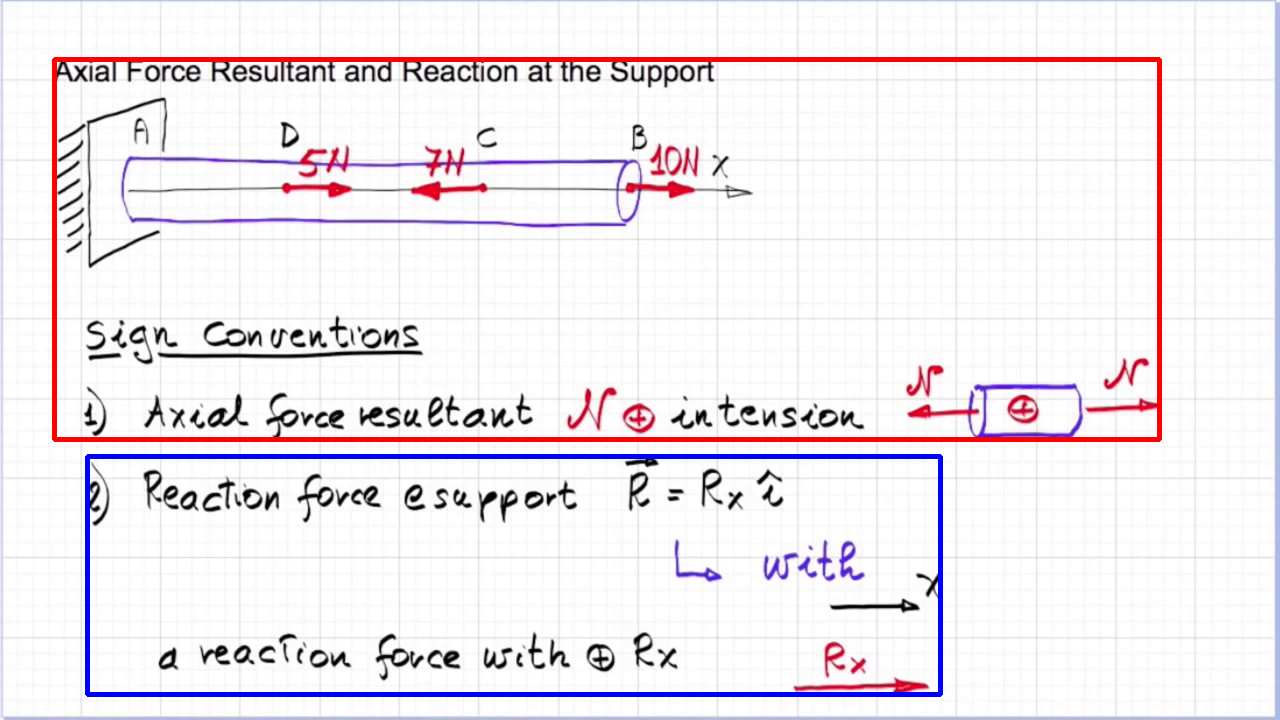 Axial Force Resultant and Reaction at the Support
A D C B
5N 7N 10N x
Sign Conventions
1) Axial force resultant N ⊕ in tension N ⊕ N
2) Reaction force @ support R = Rx î
↳ with
x
a reaction force with ⊕ Rx Rx